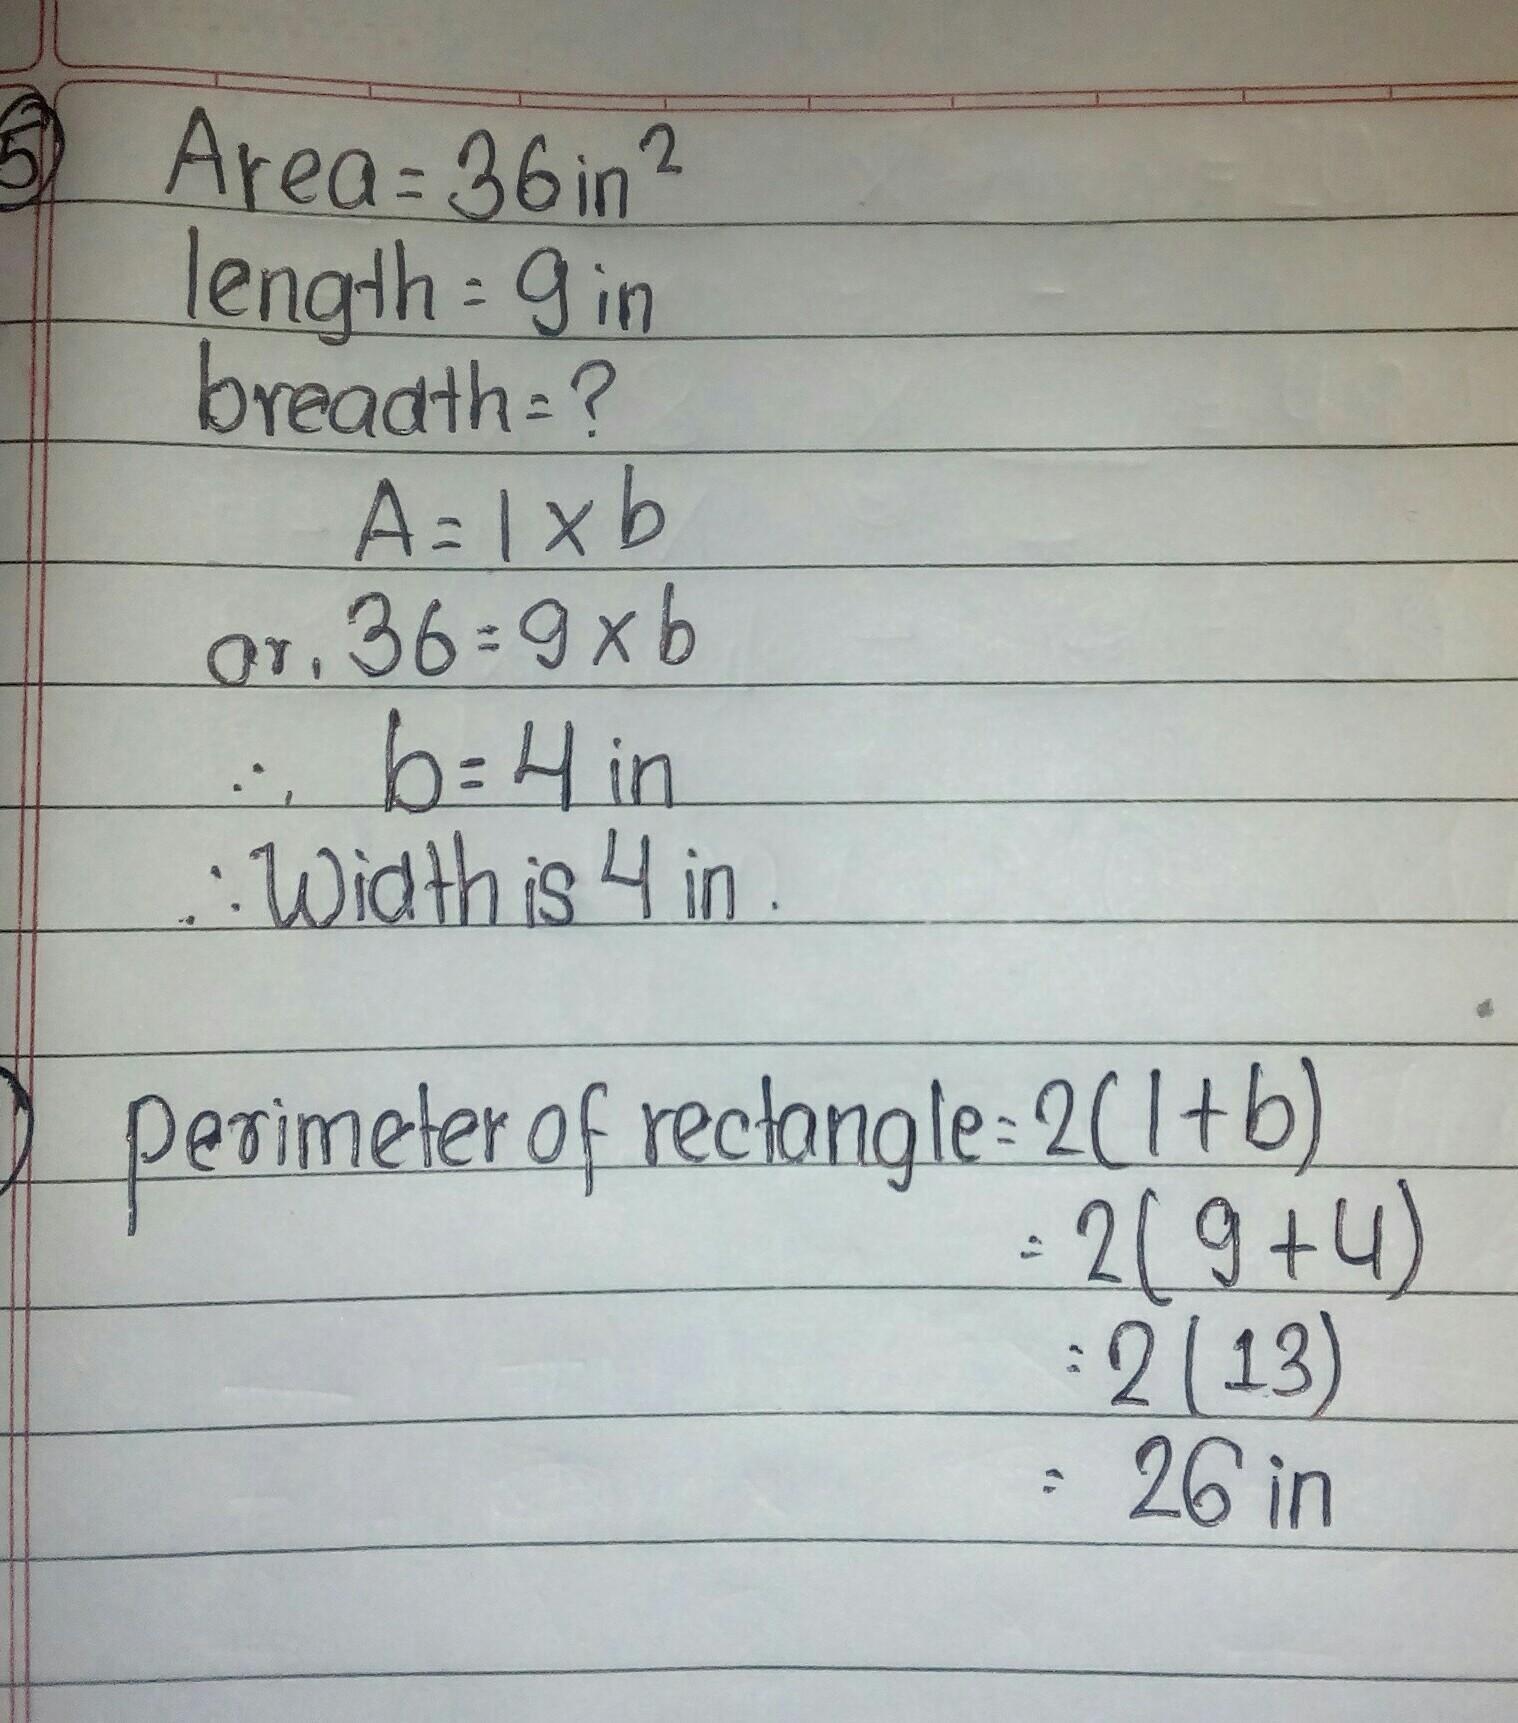 5) Area = 36 in²
length = 9 in
breadth = ?
A = l × b
or, 36 = 9 × b
∴ b = 4 in
∴ Width is 4 in.
) perimeter of rectangle = 2(l + b)
= 2(9 + 4)
= 2(13)
= 26 in